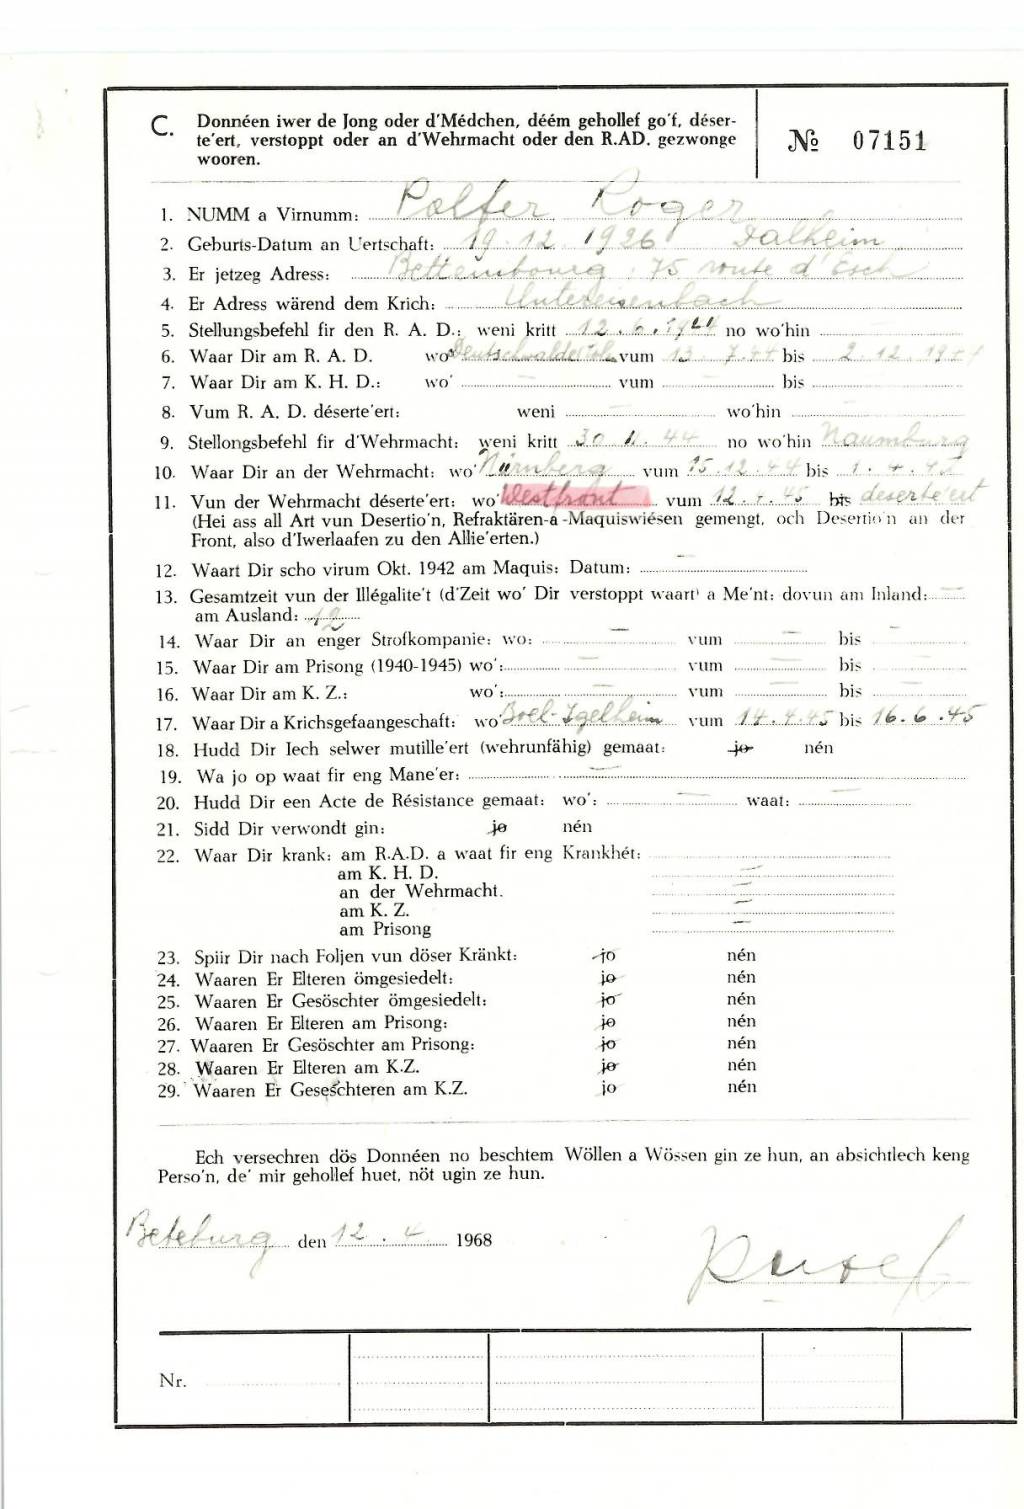 C. Donnéen iwer de Jong oder d'Médchen, déém gehollef go'f, déser-
te'ert, verstoppt oder an d'Wehrmacht oder den R.AD. gezwonge
wooren.
№ 07151
1. NUMM a Virnumm: Polfer Roger
2. Geburts-Datum an Uertschaft: 19.12.1926 Dalheim
3. Er jetzeg Adress: Bettembourg 75 route d'Esch
4. Er Adress wärend dem Krich: Untereisenbach
5. Stellungsbefehl fir den R. A. D.: weni kritt 12.6.1944 no wo'hin —
6. Waar Dir am R. A. D. wo' vum 13.7.44 bis 2.12.1944
7. Waar Dir am K. H. D.: wo' — vum — bis —
8. Vum R. A. D. déserte'ert: weni — wo'hin —
9. Stellongsbefehl fir d'Wehrmacht: weni kritt 30.11.44 no wo'hin Naumburg
10. Waar Dir an der Wehrmacht: wo' Nürnberg vum 15.12.44 bis 1.4.45
11. Vun der Wehrmacht déserte'ert: wo' Westfront vum 12.4.45 bis deserte'ert
(Hei ass all Art vun Desertio'n, Refraktären-a-Maquiswiésen gemengt, och Desertio'n an der
Front, also d'Iwerlaafen zu den Allie'erten.)
12. Waart Dir scho virum Okt. 1942 am Maquis: Datum: —
13. Gesamtzeit vun der Illégalite't (d'Zeit wo' Dir verstoppt waart) a Me'nt: dovun am Inland: —
am Ausland: 12
14. Waar Dir an enger Strofkompanie: wo: — vum — bis —
15. Waar Dir am Prisong (1940-1945) wo': — vum — bis —
16. Waar Dir am K. Z.: wo': — vum — bis —
17. Waar Dir a Krichsgefaangeschaft: wo' Boel-Igelheim vum 14.4.45 bis 16.6.45
18. Hudd Dir Iech selwer mutille'ert (wehrunfähig) gemaat: jo nén
19. Wa jo op waat fir eng Mane'er: —
20. Hudd Dir een Acte de Résistance gemaat: wo': — waat: —
21. Sidd Dir verwondt gin: jo nén
22. Waar Dir krank: am R.A.D. a waat fir eng Krankhét:
am K. H. D. —
an der Wehrmacht. —
am K. Z. —
am Prisong —
23. Spiir Dir nach Foljen vun döser Kränkt: jo nén
24. Waaren Er Elteren ömgesiedelt: jo nén
25. Waaren Er Gesöschter ömgesiedelt: jo nén
26. Waaren Er Elteren am Prisong: jo nén
27. Waaren Er Gesöschter am Prisong: jo nén
28. Waaren Er Elteren am K.Z. jo nén
29. Waaren Er Geseschteren am K.Z. jo nén
Ech versechren dös Donnéen no beschtem Wöllen a Wössen gin ze hun, an absichtlech keng
Perso'n, de' mir gehollef huet, nöt ugin ze hun.
Beteburg den 12.4 1968
Nr.